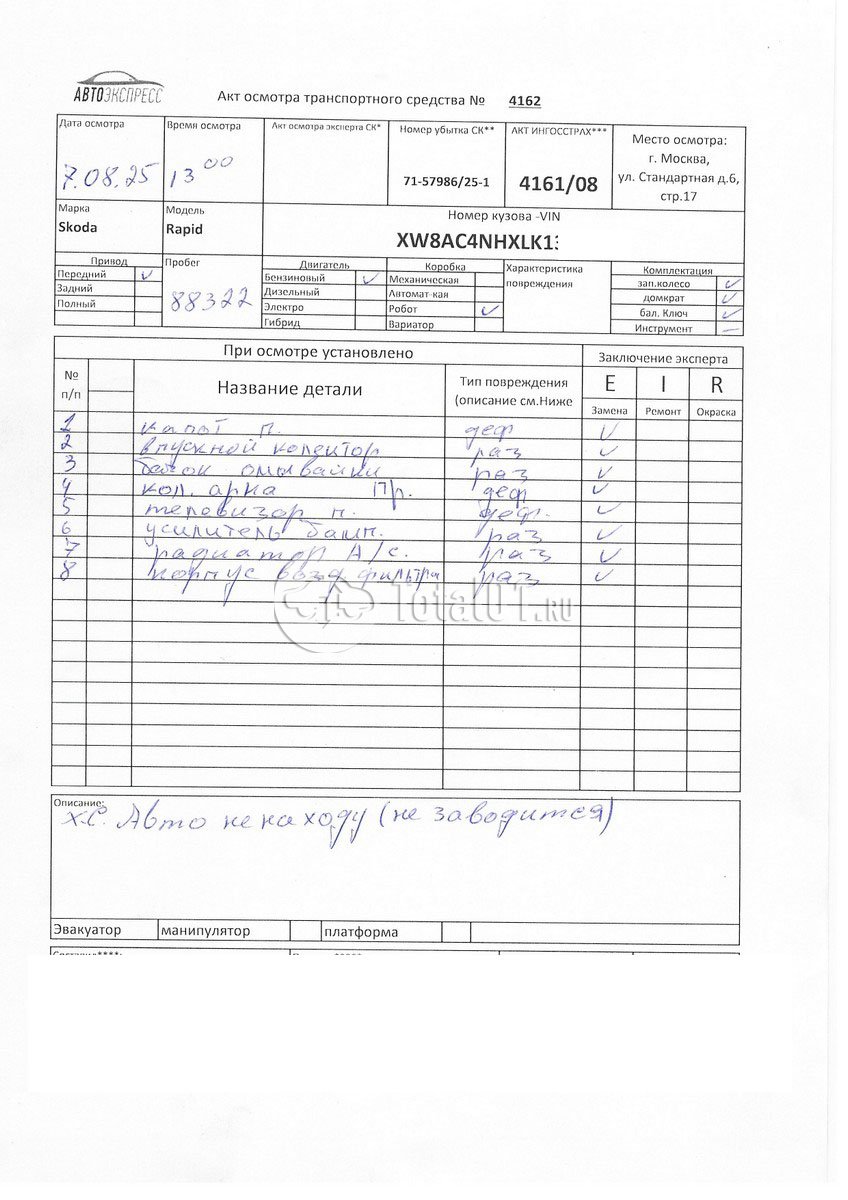 АВТОЭКСПРЕСС
Акт осмотра транспортного средства № 4162
Дата осмотра
7.08.25
Время осмотра
13 00
Акт осмотра эксперта СК*
Номер убытка СК**
71-57986/25-1
АКТ ИНГОССТРАХ***
4161/08
Место осмотра:
г. Москва,
ул. Стандартная д.6,
стр.17
Марка
Skoda
Модель
Rapid
Номер кузова -VIN
XW8AC4NHXLK1
Привод
Передний ✓
Задний
Полный
Пробег
88322
Двигатель
Бензиновый ✓
Дизельный
Электро
Гибрид
Коробка
Механическая
Автомат кая
Робот ✓
Вариатор
Характеристика
повреждения
Комплектация
зап.колесо ✓
домкрат ✓
бал. Ключ ✓
Инструмент —
При осмотре установлено
Заключение эксперта
№
п/п
Название детали
Тип повреждения
(описание см.Ниже
E I R
Замена Ремонт Окраска
1 капот п. деф ✓
2 впускной колектор раз ✓
3 бачок омывайки раз ✓
4 кол. арка Пр. деф ✓
5 телевизор п. деф. ✓
6 усилитель бамп. раз ✓
7 радиатор А/с. раз ✓
8 корпус возд фильтра раз ✓
Total01.RU
Описание:
х.С. Авто не на ходу (не заводится)
Эвакуатор манипулятор платформа